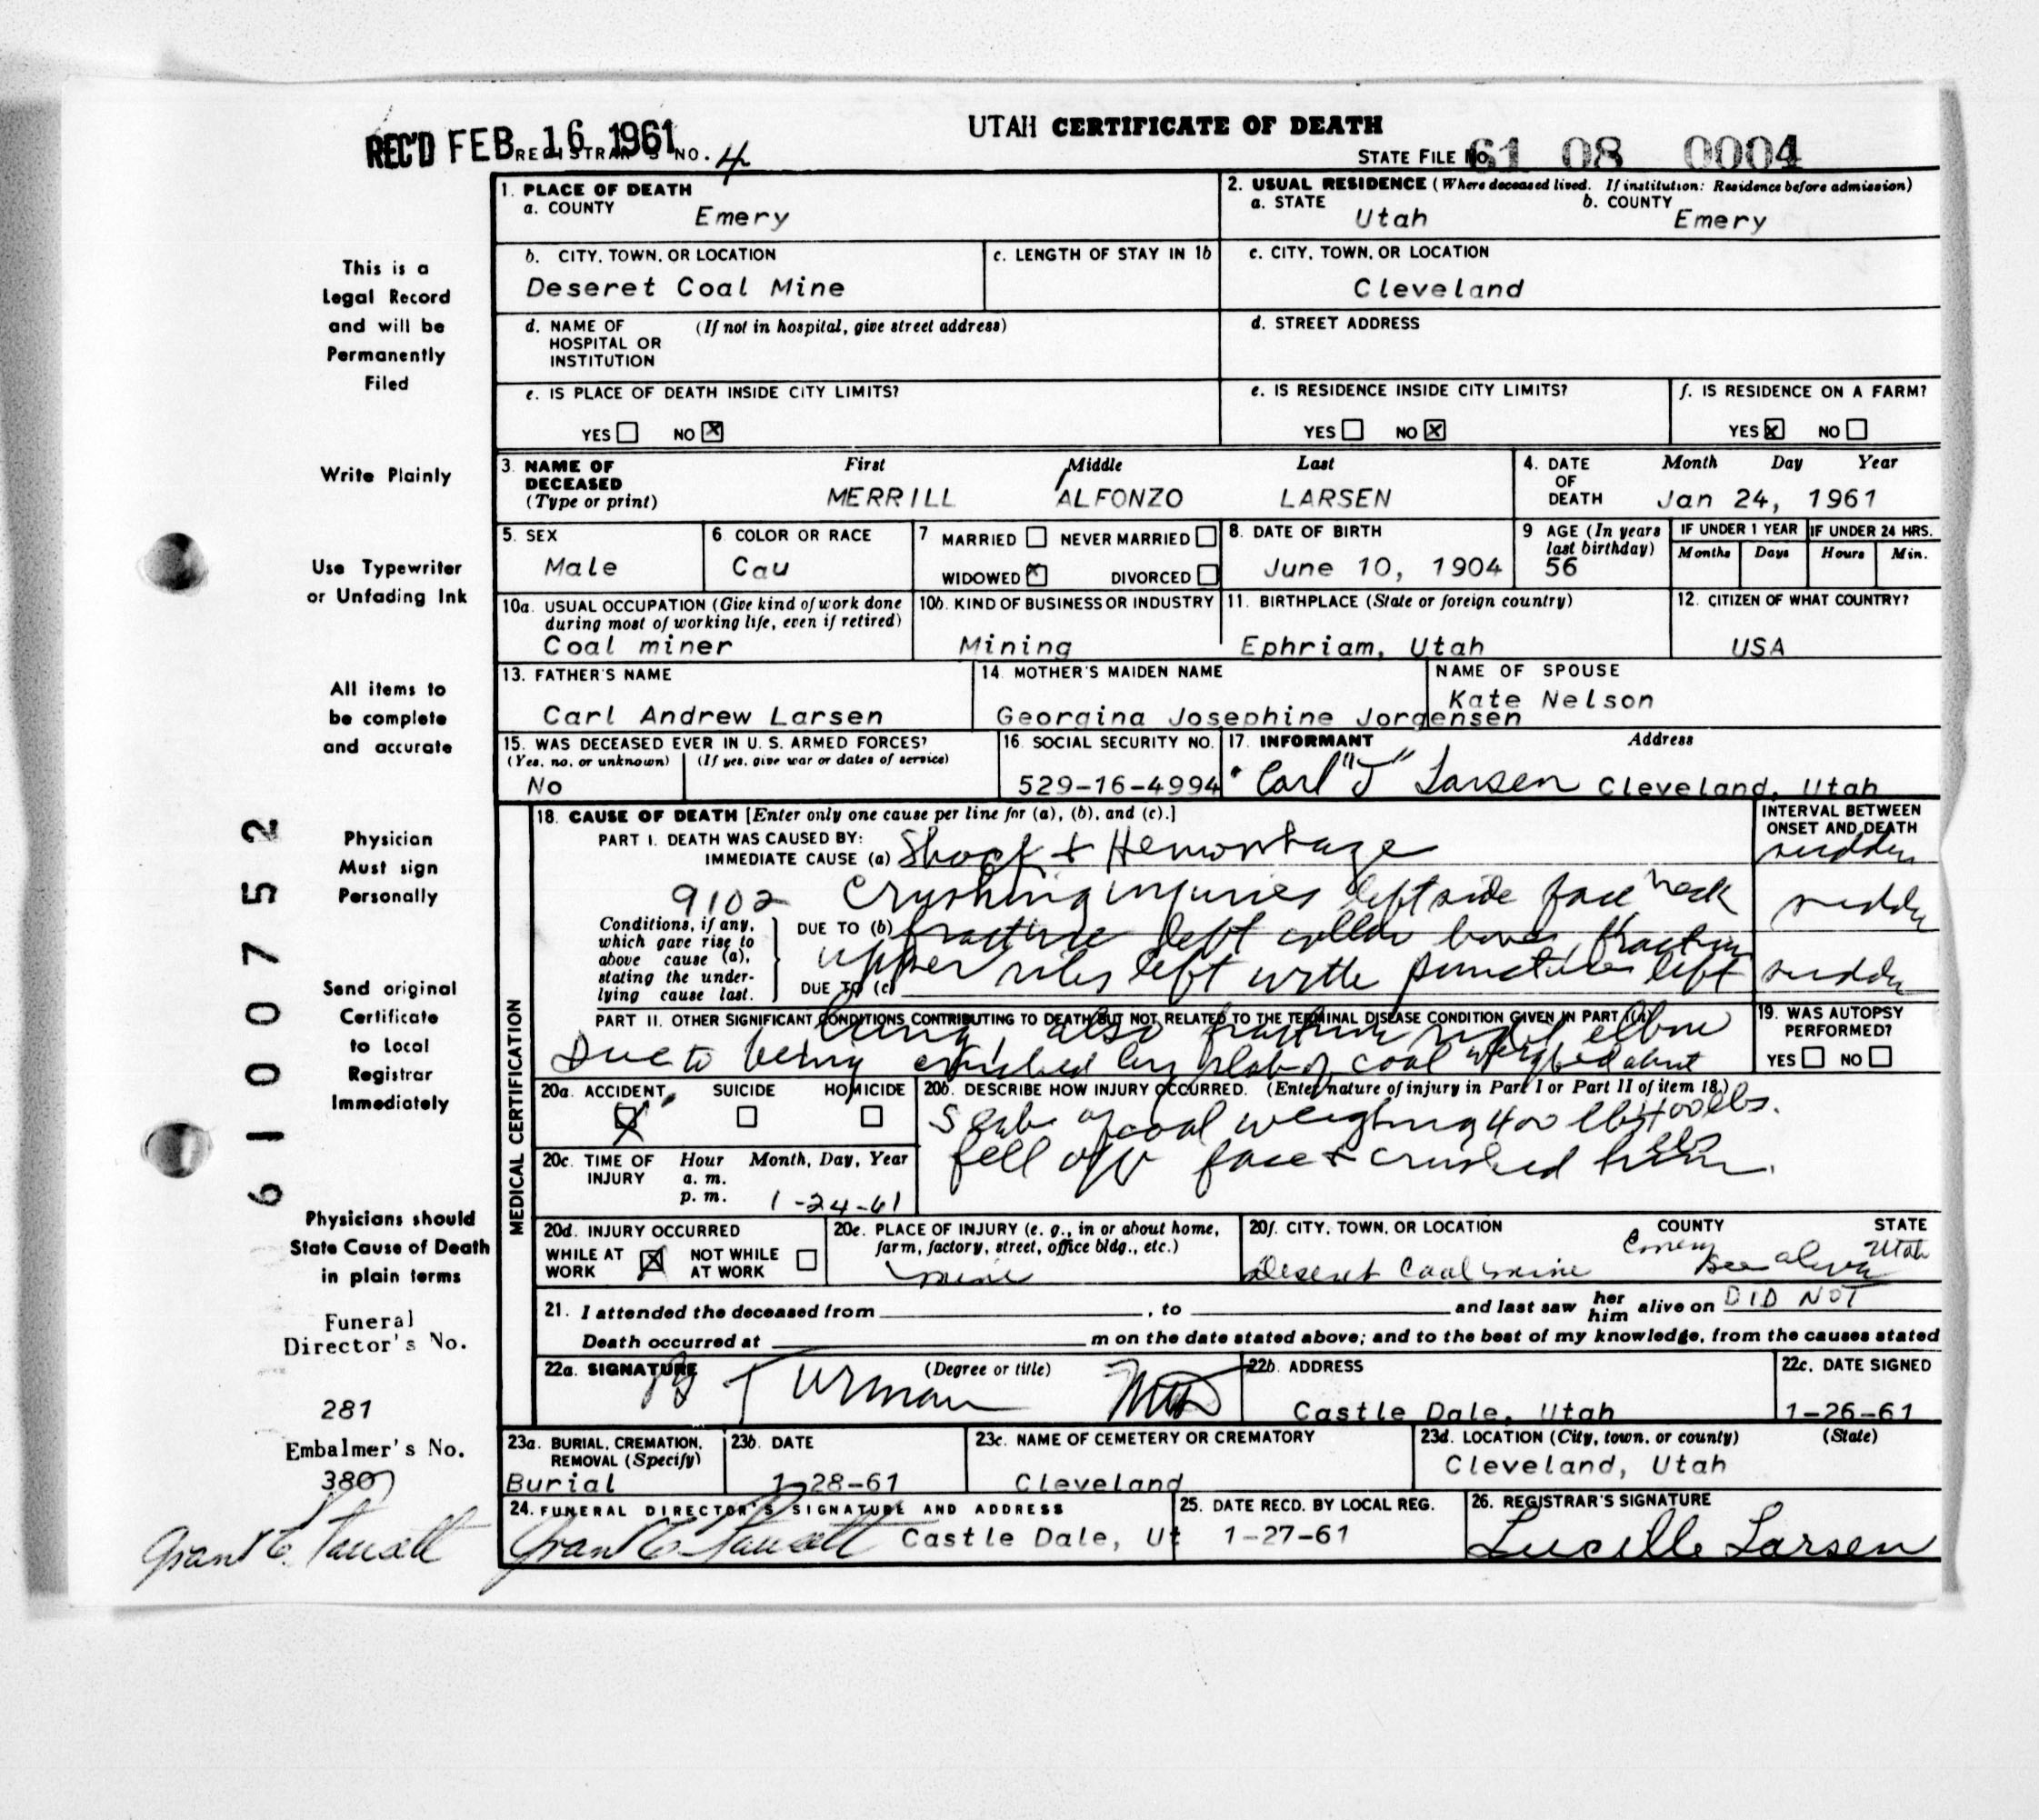 UTAH CERTIFICATE OF DEATH
REC'D FEB 16 1961
REGISTRAR'S NO. 4
STATE FILE NO. 61 08 0004
This is a
Legal Record
and will be
Permanently
Filed
Write Plainly
Use Typewriter
or Unfading Ink
All items to
be complete
and accurate
Physician
Must sign
Personally
Send original
Certificate
to Local
Registrar
Immediately
Physicians should
State Cause of Death
in plain terms
Funeral
Director's No.
281
Embalmer's No.
380
6100752
1. PLACE OF DEATH
a. COUNTY
Emery
2. USUAL RESIDENCE (Where deceased lived. If institution: Residence before admission)
a. STATE b. COUNTY
Utah Emery
b. CITY, TOWN, OR LOCATION
Deseret Coal Mine
c. LENGTH OF STAY IN 1b
c. CITY, TOWN, OR LOCATION
Cleveland
d. NAME OF (If not in hospital, give street address)
HOSPITAL OR
INSTITUTION
d. STREET ADDRESS
e. IS PLACE OF DEATH INSIDE CITY LIMITS?
YES NO X
e. IS RESIDENCE INSIDE CITY LIMITS?
YES NO X
f. IS RESIDENCE ON A FARM?
YES X NO
3. NAME OF DECEASED First Middle Last
(Type or print) MERRILL ALFONZO LARSEN
4. DATE OF DEATH Month Day Year
Jan 24, 1961
5. SEX
Male
6. COLOR OR RACE
Cau
7 MARRIED NEVER MARRIED
WIDOWED X DIVORCED
8. DATE OF BIRTH
June 10, 1904
9 AGE (In years last birthday)
56
IF UNDER 1 YEAR IF UNDER 24 HRS.
Months Days Hours Min.
10a. USUAL OCCUPATION (Give kind of work done
during most of working life, even if retired)
Coal miner
10b. KIND OF BUSINESS OR INDUSTRY
Mining
11. BIRTHPLACE (State or foreign country)
Ephriam, Utah
12. CITIZEN OF WHAT COUNTRY?
USA
13. FATHER'S NAME
Carl Andrew Larsen
14. MOTHER'S MAIDEN NAME
Georgina Josephine Jorgensen
NAME OF SPOUSE
Kate Nelson
15. WAS DECEASED EVER IN U. S. ARMED FORCES?
(Yes, no, or unknown) (If yes, give war or dates of service)
No
16. SOCIAL SECURITY NO.
529-16-4994
17. INFORMANT Address
Carl "J" Larsen Cleveland, Utah
MEDICAL CERTIFICATION
18. CAUSE OF DEATH [Enter only one cause per line for (a), (b), and (c).]
INTERVAL BETWEEN
ONSET AND DEATH
PART I. DEATH WAS CAUSED BY:
IMMEDIATE CAUSE (a) Shock + Hemorrhage sudden
9102 Crushing injuries left side face neck sudden
Conditions, if any,
which gave rise to
above cause (a),
stating the under-
lying cause last.
DUE TO (b) fracture left collar bone, fracture
upper ribs left with puncture left sudden
DUE TO (c)
PART II. OTHER SIGNIFICANT CONDITIONS CONTRIBUTING TO DEATH BUT NOT RELATED TO THE TERMINAL DISEASE CONDITION GIVEN IN PART I(a)
lung, also fracture right elbow
Due to being crushed by slab of coal weighed about
400 lbs.
19. WAS AUTOPSY
PERFORMED?
YES NO
20a. ACCIDENT SUICIDE HOMICIDE
X
20b. DESCRIBE HOW INJURY OCCURRED. (Enter nature of injury in Part I or Part II of item 18.)
Slab of coal weighing 400 lbs
fell off face & crushed him.
20c. TIME OF INJURY Hour Month, Day, Year
a. m.
p. m. 1-24-61
20d. INJURY OCCURRED
WHILE AT WORK X NOT WHILE AT WORK
20e. PLACE OF INJURY (e. g., in or about home,
farm, factory, street, office bldg., etc.)
mine
20f. CITY, TOWN, OR LOCATION COUNTY STATE
Deseret Coal mine Emery Utah
21. I attended the deceased from , to and last saw her him alive on DID NOT
see alive
Death occurred at m on the date stated above; and to the best of my knowledge, from the causes stated
22a. SIGNATURE (Degree or title)
Turman MD
22b. ADDRESS
Castle Dale, Utah
22c. DATE SIGNED
1-26-61
23a. BURIAL, CREMATION,
REMOVAL (Specify)
Burial
23b. DATE
1-28-61
23c. NAME OF CEMETERY OR CREMATORY
Cleveland
23d. LOCATION (City, town, or county) (State)
Cleveland, Utah
24. FUNERAL DIRECTOR'S SIGNATURE AND ADDRESS
Castle Dale, Ut
25. DATE RECD. BY LOCAL REG.
1-27-61
26. REGISTRAR'S SIGNATURE
Lucille Larsen